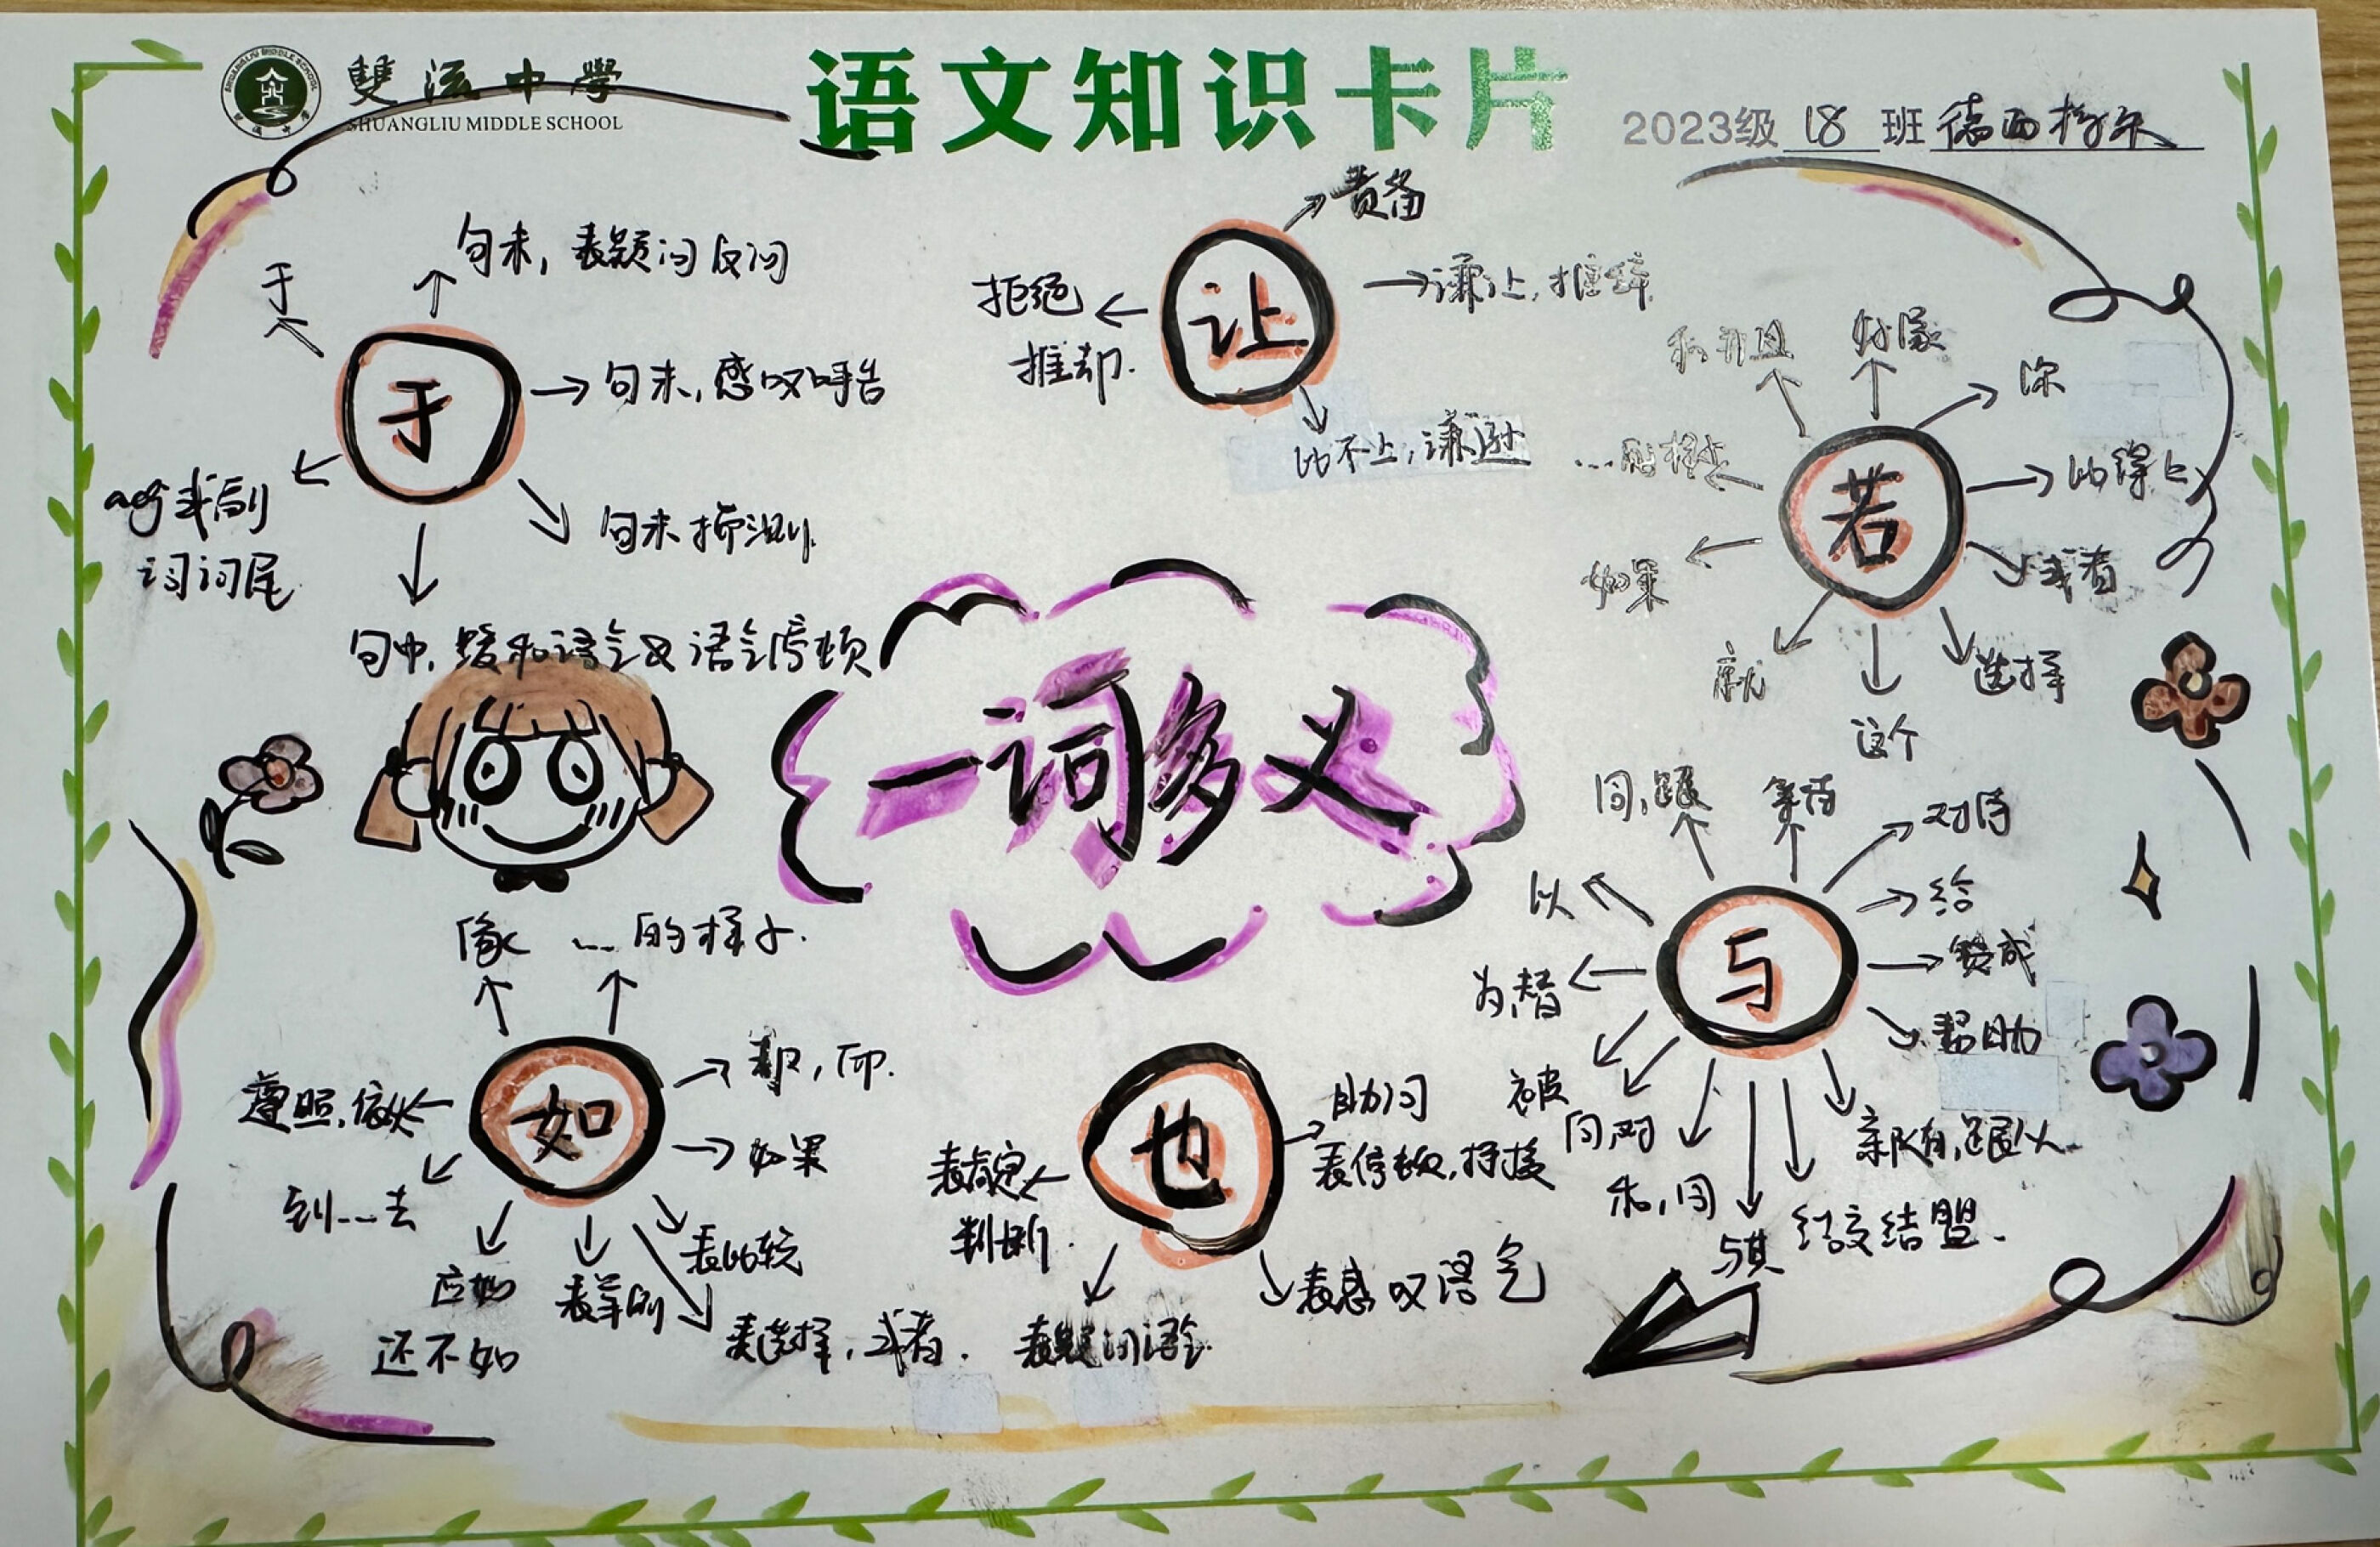 雙流中學
SHUANGLIU MIDDLE SCHOOL
语文知识卡片
2023级 18 班 德西梅朵
于
句末，表疑问反问
于
句末，感叹呼告
句末揣测
句中，缓和语气或语气停顿
adj或副
词词尾
让
责备
谦让，推辞
比不上，谦逊
拒绝
推却.
若
和, 并且
好像
你
比得上
或者
选择
这个
就
如果
一词多义
与
同，跟
等待
对待
给
赞成
帮助
亲附，跟从
结交结盟.
与其
和，同
向，对
被
为，替
以
如
像
...的样子.
表, 而.
如果
表比较
表选择，或者.
表举例
应如
还不如
到...去
遵照，依从
也
助词
表停顿，
表感叹语气
表疑问语气
表肯定
判断.